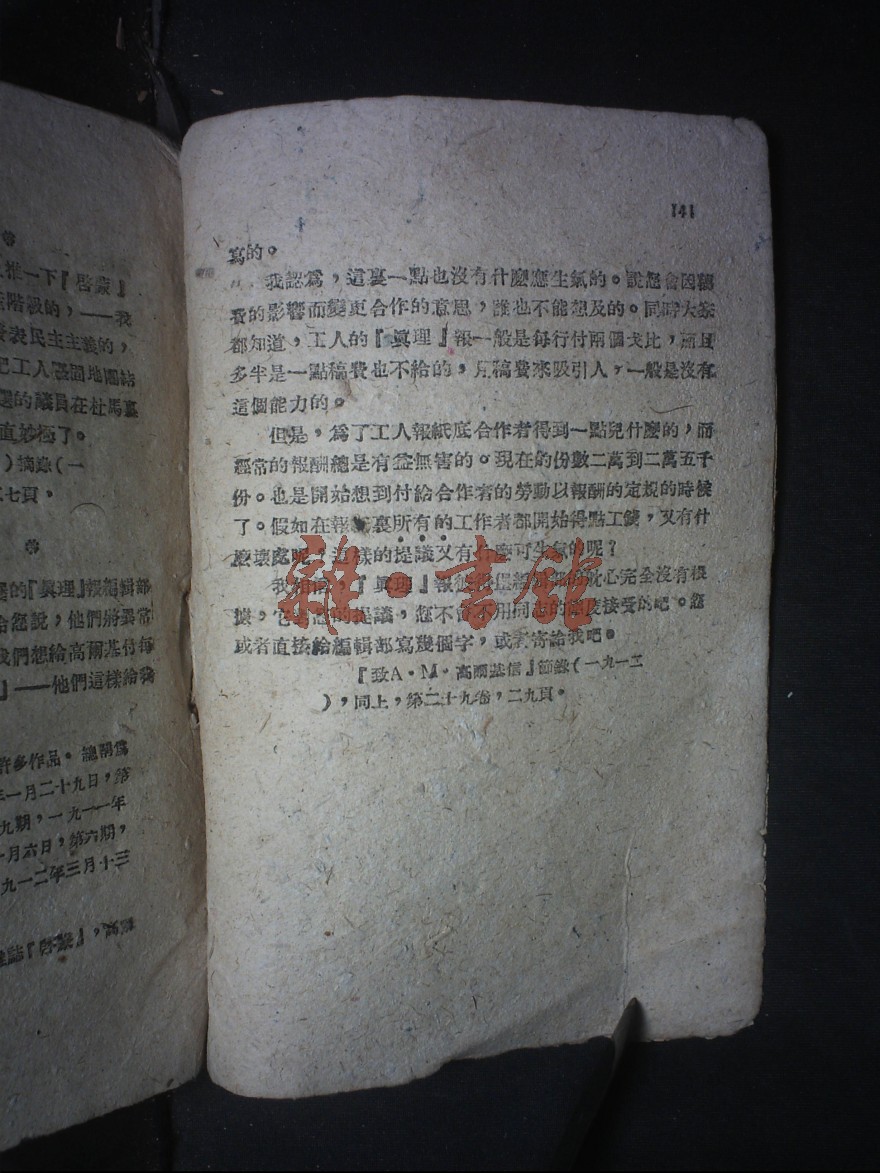 推一下『啓蒙』
階級的，——我
表民主主義的，
工人
的議員在杜馬裏
直妙極了。
）摘錄（一
七頁，
的『眞理』報編輯部
給您說，他們將異常
我們想給高爾基付每
』——他們這樣給我
許多作品。
年一月二十九日，第
九期，一九一一年
月六日，第六期，
九一二年三月十三
141
寫的。
我認爲，這裏一點也沒有什麼應生氣的。說您會因稿
費的影響而變更合作的意思，誰也不能想及的。同時大家
都知道，工人的『眞理』報一般是每行付兩個戈比，而且
多半是一點稿費也不給的，用稿費來吸引人，一般是沒有
這個能力的。
但是，爲了工人報紙底合作者得到一點兒什麼的，而
經常的報酬總是有益無害的。現在的份數二萬到二萬五千
份。也是開始想到付給合作者的勞動以報酬的定規的時候
了。假如在報紙裏所有的工作者都開始得點工錢，又有什
麼壞處呢？這樣的提議又有什麼可生氣的呢？
我相信，『眞理』報編輯部的耽心完全沒有根
據，它對您的提議，您不會不用同志的態度接受的吧。您
或者直接給編輯部寫幾個字，或者寄給我吧。
『致A·M·高爾基信』節錄（一九一二
），同上，第二十九卷，二九頁。
雜·書館